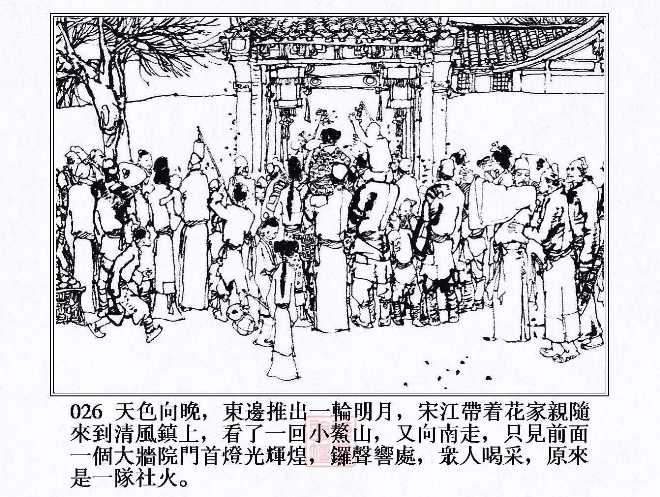 026 天色向晚，東邊推出一輪明月，宋江帶着花家親隨
來到清風鎮上，看了一回小鰲山，又向南走，只見前面
一個大牆院門首燈光輝煌，鑼聲響處，衆人喝采，原來
是一隊社火。